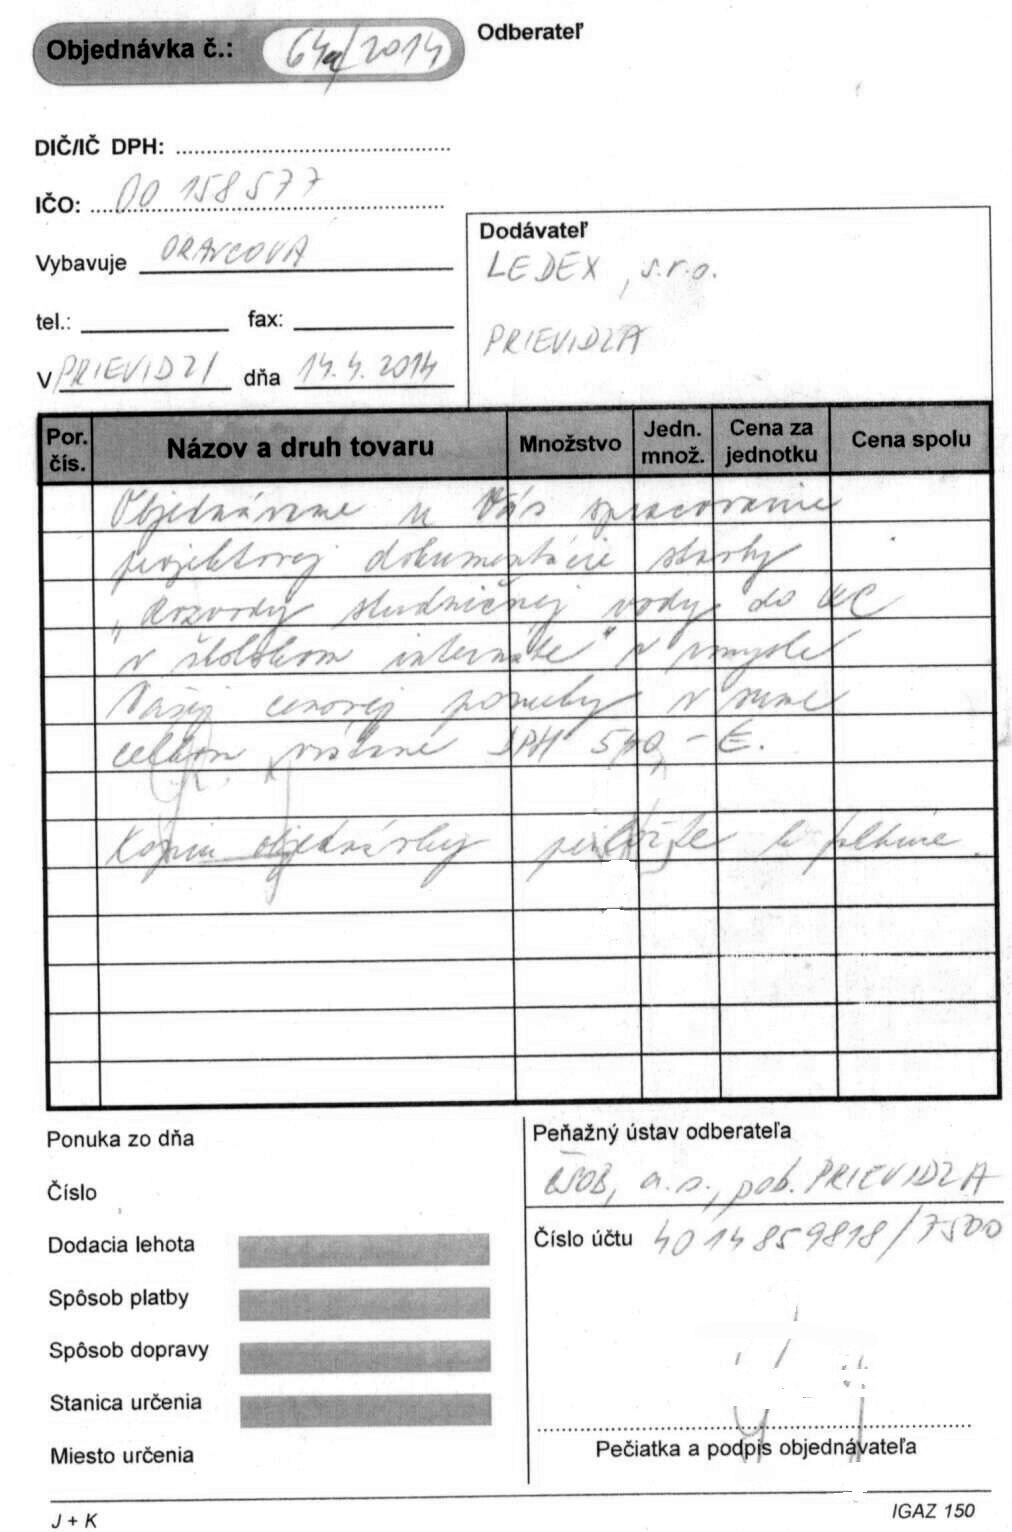 Objednávka č.: 64a/2014
Odberateľ
DIČ/IČ DPH:
IČO: 00 158577
Vybavuje ORAVCOVÁ
tel.: fax:
V PRIEVIDZI dňa 14.4.2014
Dodávateľ
LEDEX, s.r.o.
PRIEVIDZA
Por. čís. Názov a druh tovaru Množstvo Jedn. množ. Cena za jednotku Cena spolu
Objednávame u Vás spracovanie
projektovej dokumentácie stavby
„Rozvody studničnej vody do UC
v školskom internáte" v zmysle
Vašej cenovej ponuky v sume
celkom vrátane DPH 540,- €.
Kópiu objednávky priložte k faktúre.
Ponuka zo dňa
Číslo
Dodacia lehota
Spôsob platby
Spôsob dopravy
Stanica určenia
Miesto určenia
Peňažný ústav odberateľa
ČSOB, a.s., pob. PRIEVIDZA
Číslo účtu 4014859818/7500
Pečiatka a podpis objednávateľa
J + K
IGAZ 150